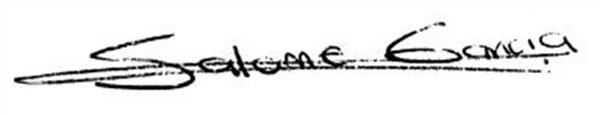 Salome Garcia